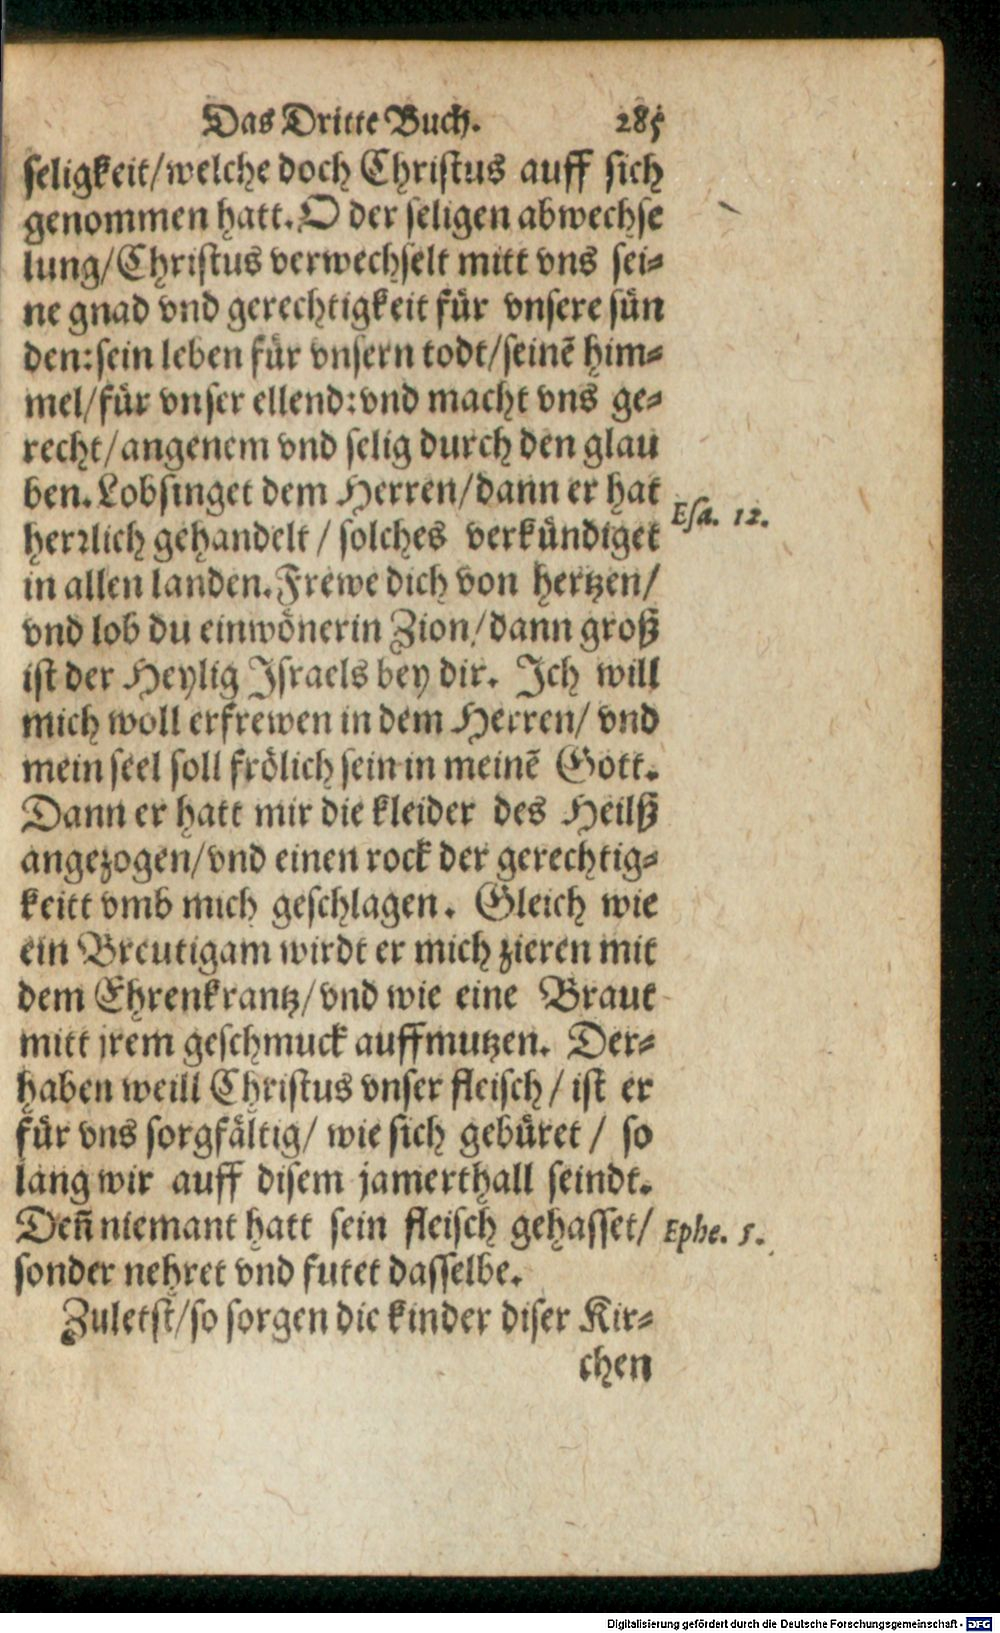 Das Dritte Buch. 285
seligkeit/welche doch Christus auff sich
genommen hatt. O der seligen abwechse
lung/Christus verwechselt mitt vns sei-
ne gnad vnd gerechtigkeit für vnsere sün
den: sein leben für vnsern todt/seinē him-
mel/für vnser ellend: vnd macht vns ge-
recht/angenem vnd selig durch den glau
ben. Lobsinget dem Herren/dann er hat
Esa. 12.
herrlich gehandelt / solches verkündiget
in allen landen. Frewe dich von hertzen/
vnd lob du einwönerin Zion/dann groß
ist der Heylig Israels bey dir. Ich will
mich woll erfrewen in dem Herren/ vnd
mein seel soll frölich sein in meinē Gott.
Dann er hatt mir die kleider des Heilß
angezogen/vnd einen rock der gerechtig-
keitt vmb mich geschlagen. Gleich wie
ein Breutigam wirdt er mich zieren mit
dem Ehrenkrantz/vnd wie eine Braut
mitt jrem geschmuck auffmutzen. Der-
haben weill Christus vnser fleisch / ist er
für vns sorgfältig/ wie sich gebüret / so
lang wir auff disem jamerthall seindt.
Deñ niemant hatt sein fleisch gehasset/
Ephe. 5.
sonder nehret vnd futet dasselbe.
Zuletst/so sorgen die kinder diser Kir-
chen
Digitalisierung gefördert durch die Deutsche Forschungsgemeinschaft - DFG